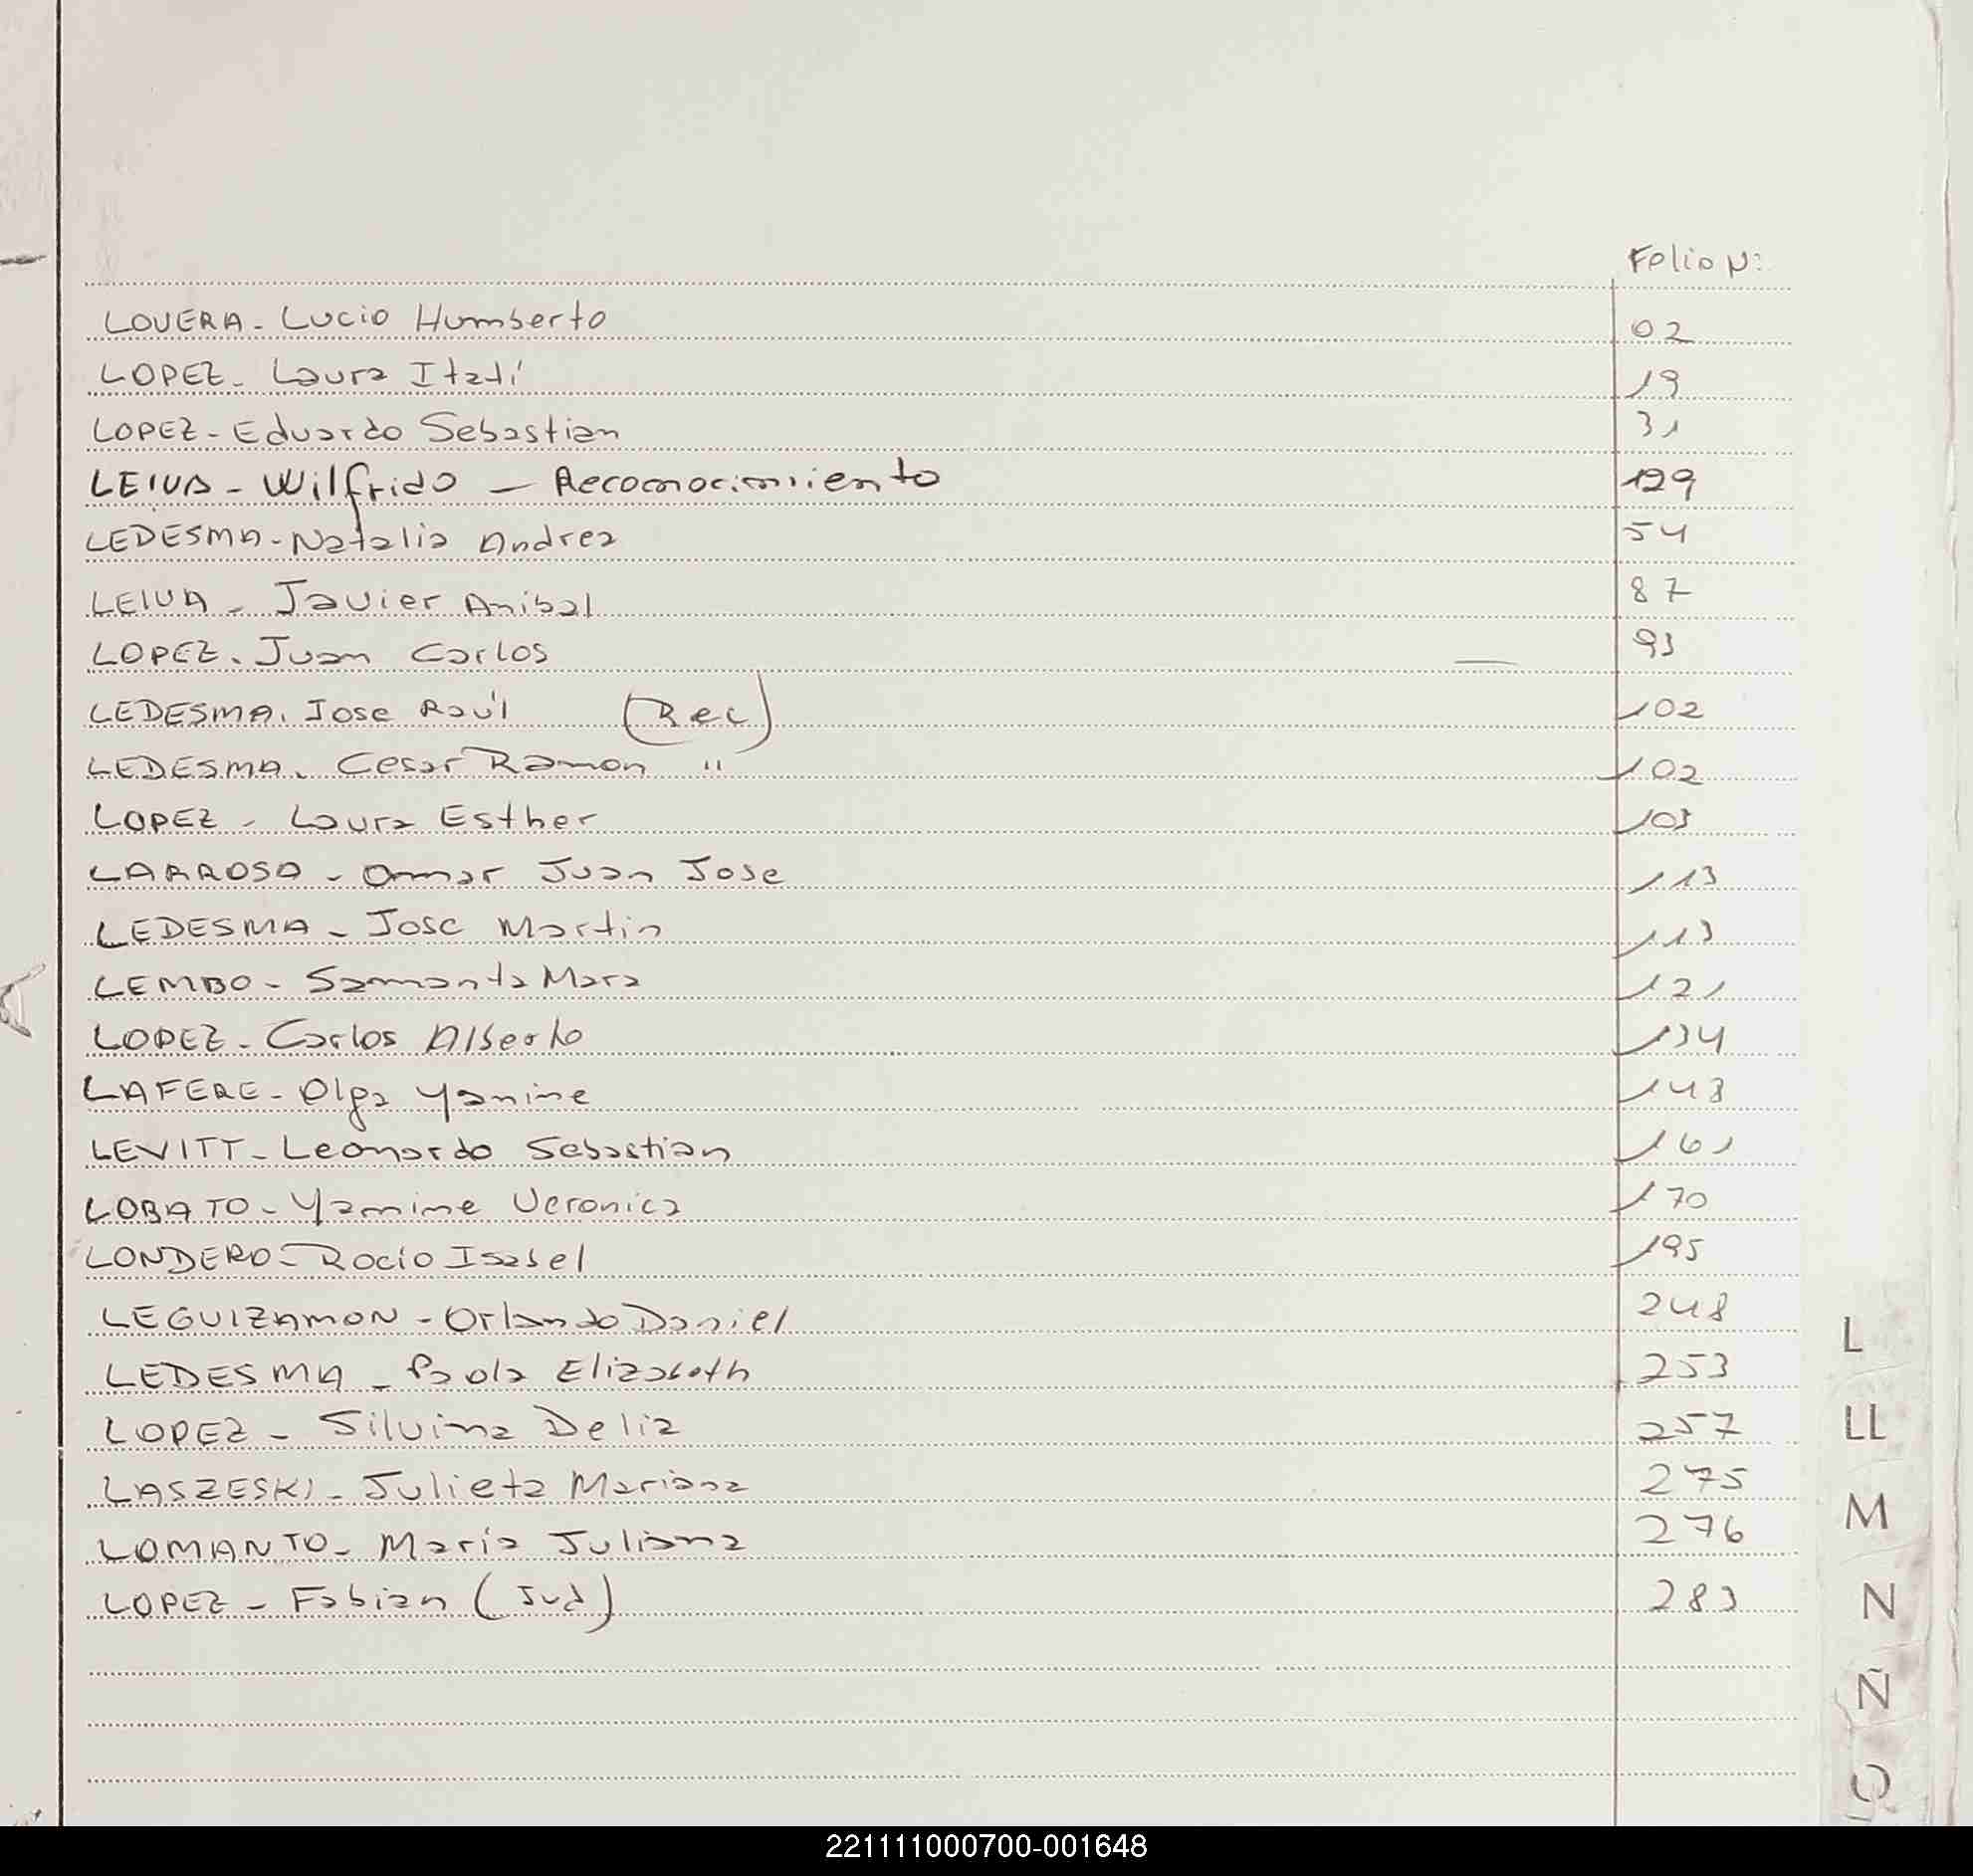 Folio N:
LOVERA - Lucio Humberto 02
LOPEZ - Laura Itatí 19
LOPEZ - Eduardo Sebastian 31
LEIVA - Wilfrido - Reconocimiento 129
LEDESMA - Natalia Andrea 54
LEIVA - Javier Anibal 87
LOPEZ. Juan Carlos 93
LEDESMA. Jose Raúl (Rec) 102
LEDESMA. Cesar Ramon " 102
LOPEZ - Laura Esther 103
LARROSA - Omar Juan Jose 113
LEDESMA - Jose Martin 113
LEMBO - Samanta Mara 121
LOPEZ - Carlos Alberto 134
LAFERE - Olga Yanine 143
LEVITT - Leonardo Sebastian 161
LOBATO - Yamine Veronica 170
LONDERO - Rocio Isabel 195
LEGUIZAMON - Orlando Daniel 248
LEDESMA - Paola Elizabeth 253
LOPEZ - Silvina Delia 257
LASZESKI - Julieta Mariana 275
LOMANTO - María Juliana 276
LOPEZ - Fabian (Jud) 283
L
LL
M
N
Ñ
O
221111000700-001648